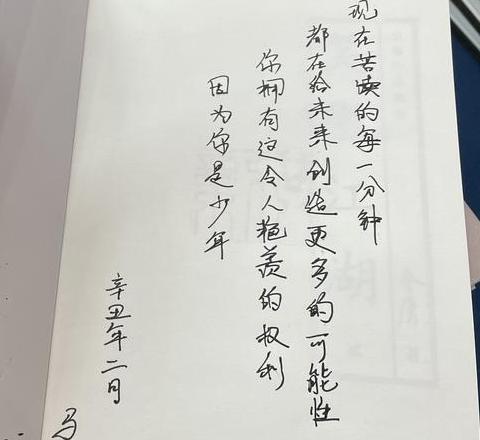 现在苦读的每一分钟
都在给未来创造更多的可能性
你拥有这令人艳羡的权利
因为你是少年
辛丑年二月
马